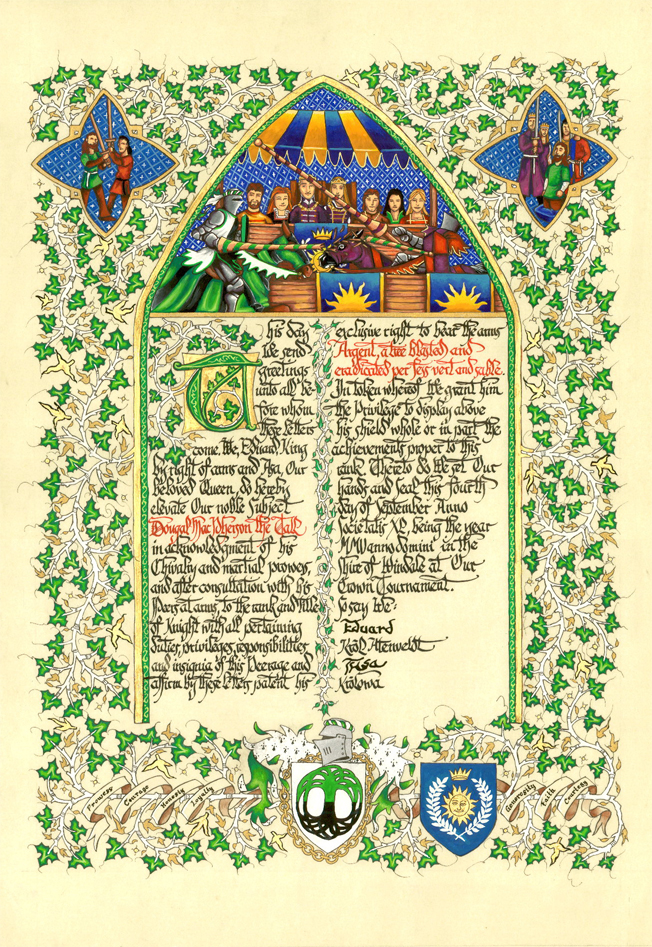 This day
We send
greetings
unto all be-
fore whom
these letters
come. We, Eduard King
by right of arms and Asa, Our
beloved Queen, do hereby
elevate Our noble Subject
Dougal MacPherson the Tall
in acknowledgment of his
Chivalry and martial prowess
and after consultation with his
Peers at arms, to the rank and title
of Knight with all pertaining
duties, privileges, responsibilities,
and insignia of this Peerage and
affirm by these letters patent his
exclusive right to bear the arms
Argent, a tree blasted and
eradicated per fess vert and sable.
In token whereof We grant him
the Privilege to display above
his shield whole or in part the
achievements proper to this
rank. Thereto do We set Our
hands and seal this fourth
day of September Anno
Societatis XL, being the year
MMV anno domini in the
Shire of Windale at Our
Crown Tournament.
So say We:
Eduard
Król Atenveldt
Królowa
Prowess
Courage
Honesty
Loyalty
Generosity
Faith
Courtesy